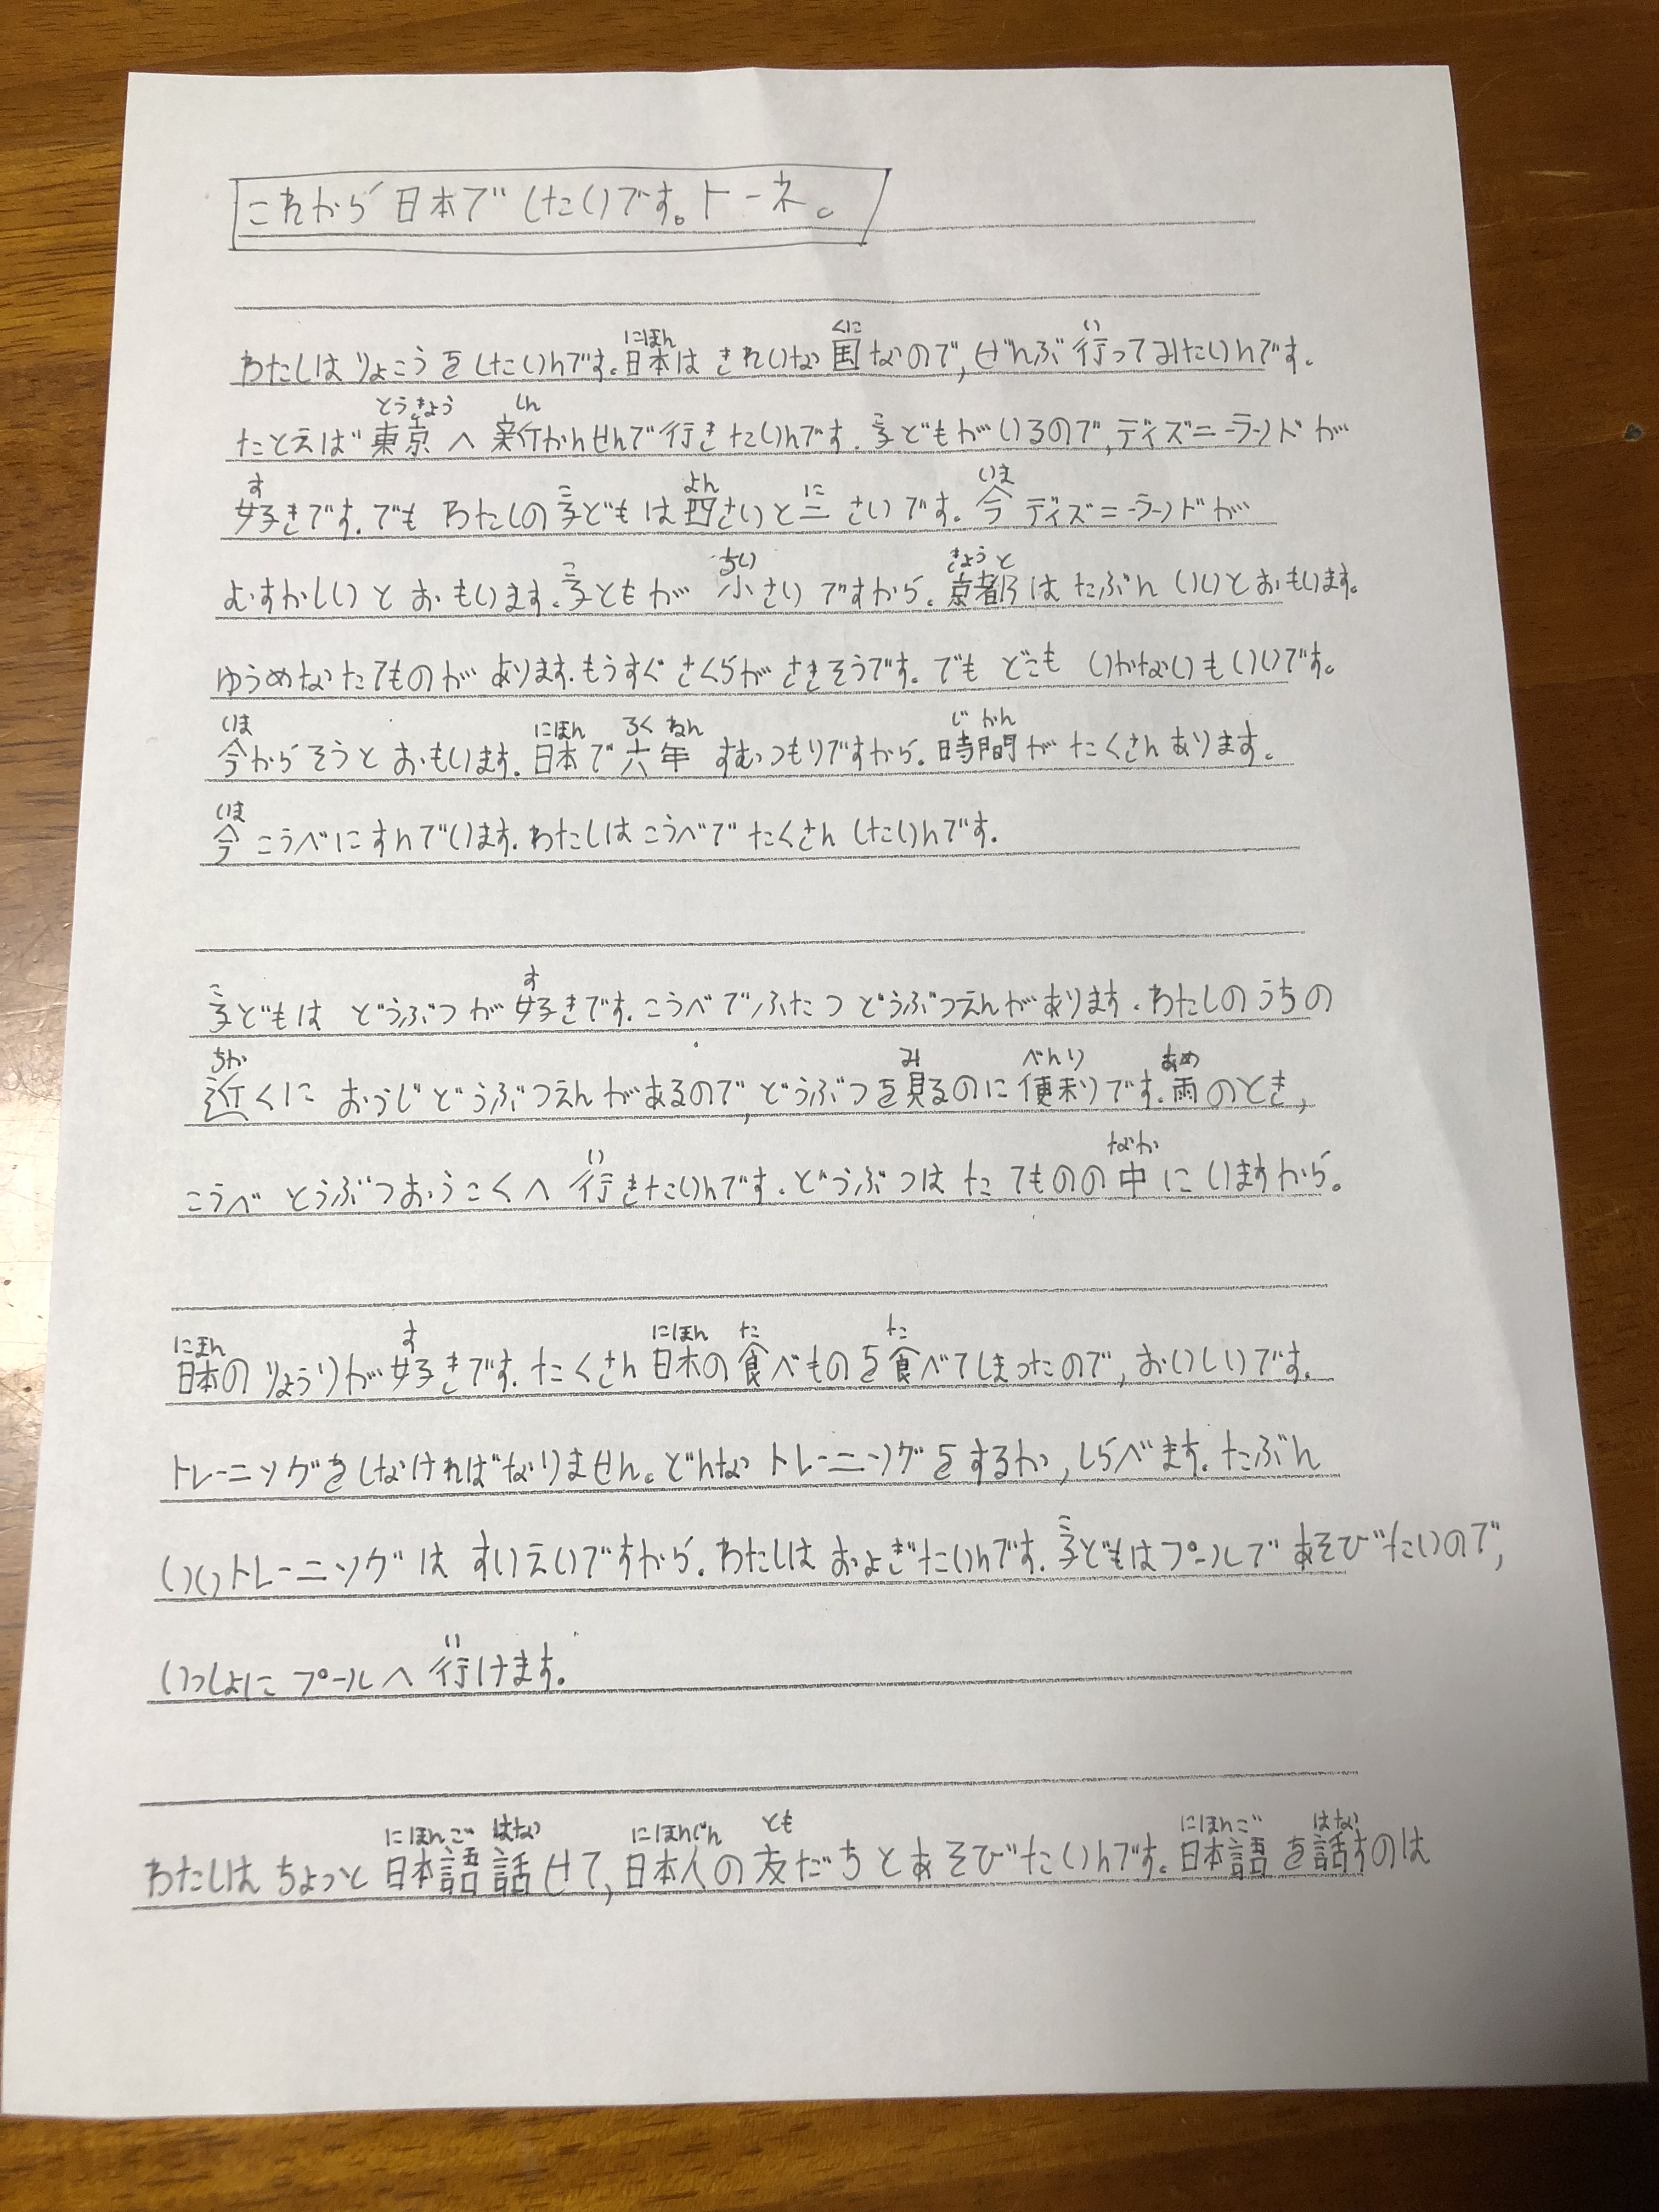 これから日本でしたいです。トーネ。
わたしはりょこうをしたいんです。日本はきれいな国なので、ぜんぶ行ってみたいんです。
たとえば東京へ新かんせんで行きたいんです。子どもがいるので、ディズニーランドが
好きです。でもわたしの子どもは四さいと二さいです。今ディズニーランドが
むすかしいとおもいます。子ともが小さいですから。京都はたぶんいいとおもいます。
ゆうめなたてものがあります。もうすぐさくらがさきそうです。でもどこもいかないもいいです。
今からそうとおもいます。日本で六年すむつもりですから。時間がたくさんあります。
今こうべにすんでいます。わたしはこうべでたくさんしたいんです。
子どもはどうぶつが好きです。こうべでふたつどうぶつえんがあります。わたしのうちの
近くにおうじどうぶつえんがあるので、どうぶつを見るのに便利です。雨のとき、
こうべとうぶつおうこくへ行きたいんです。どうぶつはたてものの中にいますから。
日本のりょうりが好きです。たくさん日本の食べものを食べてしまったので、おいしいです。
トレーニングをしなければなりません。どんなトレーニングをするか、しらべます。たぶん
いいトレーニングはすいえいですから。わたしはおよぎたいんです。子どもはプールであそびたいので、
いっしょにプールへ行けます。
わたしはちょっと日本語話せて、日本人の友だちとあそびたいんです。日本語を話すのは